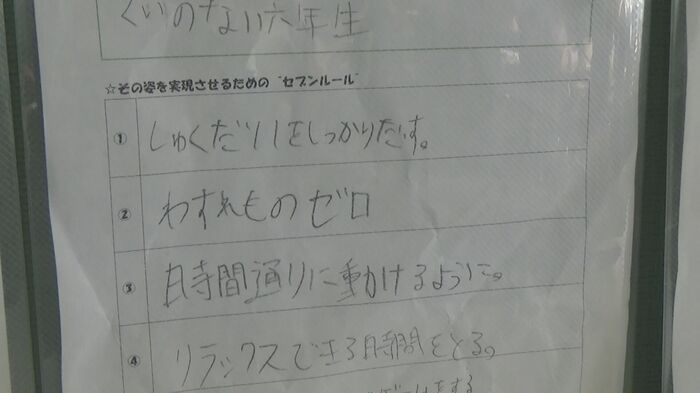 くいのない六年生
☆その姿を実現させるための“セブンルール”
① しゅくだいをしっかりだす。
② わすれものゼロ
③ 時間通りに動けるように。
④ リラックスできる時間をとる。